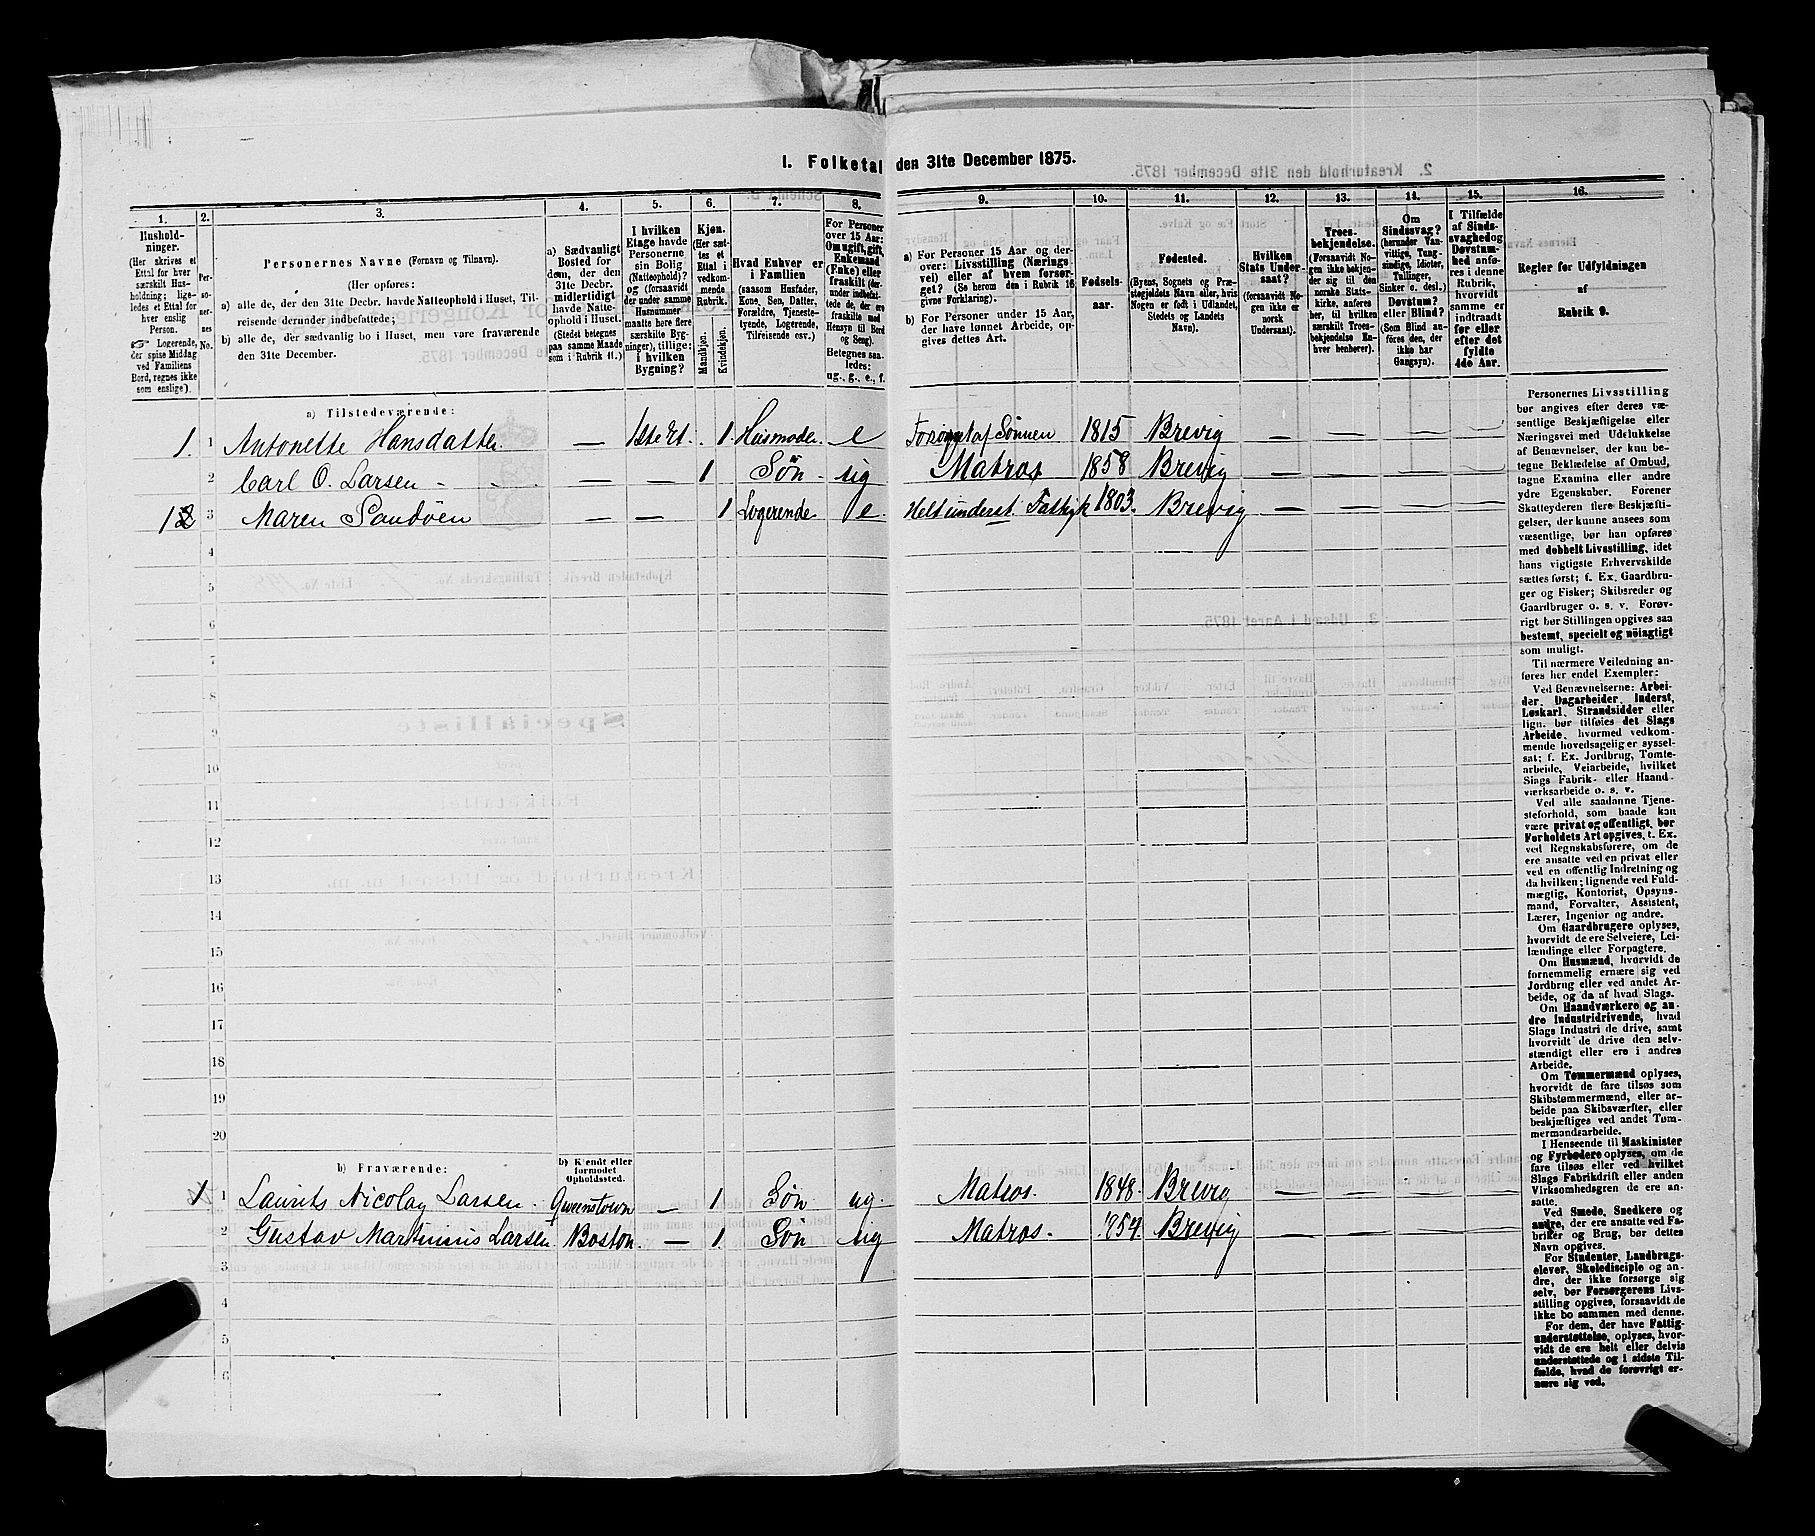 I. Folketal den 31te December 1875.
1.
2.
3.
4.
5.
6.
7.
8.
9.
10.
11.
12.
13.
14.
15.
16.
Hushold-
ninger.
(Her skrives et
Ettal for hver
særskilt Hus-
holdning; lige-
ledes et Ettal for
hver enslig
Person.
☞ Logerende,
der spise Middag
ved Familiens
Bord, regnes ikke
som enslige).
Per-
so-
ner-
nes
No.
Personernes Navne (Fornavn og Tilnavn).
(Her opføres:
a) alle de, der den 31te Decbr. havde Natteophold i Huset, Til-
reisende derunder indbefattede;
b) alle de, der sædvanlig bo i Huset, men vare fraværende
den 31te December.
a) Sædvanligt
Bosted for
dem, der den
31te Decbr.
midlertidigt
havde Natte-
ophold i Huset.
(Stedet betegnes
paa samme Maade
som i Rubrik 11.)
I hvilken
Etage havde
Personerne
sin Bolig
(Natteophold)?
og (forsaavidt
der under samme
Husnummer
maatte høre flere
særskilte Byg-
ninger), tillige:
i hvilken
Bygning?
Kjøn.
(Her sæt-
tes et
Ettal i
vedkom-
mende
Rubrik.
Mandkjøn.
Kvindekjøn.
Hvad Enhver er
i Familien
(saasom Husfader,
Kone, Søn, Datter,
Forældre, Tjeneste-
tyende, Logerende,
Tilreisende osv.)
For Personer
over 15 Aar:
Om ugift, gift,
Enkemand
(Enke) eller
fraskilt (der-
under indbefat-
tede de, der ere
fraskilte med
Hensyn til Bord
og Seng).
Betegnes saa-
ledes:
ug., g., e., f.
a) For Personer 15 Aar og der-
over: Livsstilling (Nærings-
vei) eller af hvem forsør-
get? (Se herom den i Rubrik 16
givne Forklaring).
b) For Personer under 15 Aar,
der have lønnet Arbeide, op-
gives dettes Art.
Fødsels-
aar.
Fødested.
(Byens, Sognets og Præ-
stegjeldets Navn eller, hvis
Nogen er født i Udlandet,
Stedets og Landets
Navn).
Hvilken
Stats Under-
saat?
(forsaavidt No-
gen ikke er
norsk
Undersaat).
Troes-
bekjendelse.
(Forsaavidt No-
gen ikke bekjen-
der sig til den
norske Stats-
kirke, anføres
her, til hvilken
særskilt Troes-
bekjendelse En-
hver henhører).
Om
Sindssvag?
(herunder Van-
vittige, Tung-
sindige, Idioter,
Tullinger,
Sinker o. desl.)
Døvstum?
eller Blind?
(Som Blind an-
føres den, der
ikke har
Gangsyn).
I Tilfælde
af Sinds-
svaghed og
Døvstum-
hed anfø-
res i denne
Rubrik,
hvorvidt
samme er
indtraadt
før eller
efter det
fyldte
4de Aar.
Regler for Udfyldningen
af
Rubrik 9.
a) Tilstedeværende:
1. 1 Antonette Hansdatter — 1ste Et. 1 Husmoder e Forsørget af Sønnen 1815 Brevig — — — —
2 Carl O. Larsen — — 1 Søn ug Matros 1858 Brevig — — — —
1 3 Maren Sandøen — — 1 Logerende e. Helt underst. Fattigk 1803. Brevig — — — —
4
5
6
7
8
10
11
12
13
14
15
16
17
18
19
20
b) Fraværende:
b) Kjendt eller
formodet
Opholdssted.
1 1 Laurits Nicolay Larsen. Qweenstown — 1 Søn ug Matros. 1848. Brevig — — — —
2 Gustav Martinius Larsen Boston. — 1. Søn ug Matros. 1854. Brevig — — — —
3
4
5
6
Personernes Livsstilling
bør angives efter deres væ-
sentlige Beskjæftigelse eller
Næringsvei med Udelukkelse
af Benævnelser, der kun be-
tegne Beklædelse af Ombud,
tagne Examina eller andre
ydre Egenskaber. Forener
Skatteyderen flere Beskjæfti-
gelser, der kunne ansees som
væsentlige, bør han opføres
med dobbelt Livsstilling, idet
hans vigtigste Erhvervskilde
sættes først; f. Ex. Gaardbru-
ger og Fisker; Skibsreder og
Gaardbruger o. s. v. Forøv-
rigt bør Stillingen opgives saa
bestemt, specielt og nøiagtigt
som muligt.
Til nærmere Veiledning an-
føres her endel Exempler:
Ved Benævnelserne: Arbei-
der, Dagarbeider, Inderst,
Løskarl, Strandsidder eller
lign. bør tilføies det Slags
Arbeide, hvormed vedkom-
mende hovedsagelig er syssel-
sat; f. Ex. Jordbrug, Tomte-
arbeide, Veiarbeide, hvilket
Slags Fabrik- eller Haand-
værksarbeide o. s. v.
Ved alle saadanne Tjene-
steforhold, som baade kan
være privat og offentligt, bør
Forholdets Art opgives, t. Ex.
ved Regnskabsførere, om de
ere ansatte ved en privat eller
ved en offentlig Indretning og
da hvilken; lignende ved Fuld-
mægtig, Kontorist, Opsyns-
mand, Forvalter, Assistent,
Lærer, Ingeniør og andre.
Om Gaardbrugere oplyses,
hvorvidt de ere Selveiere, Lei-
lændinge eller Forpagtere.
Om Husmænd, hvorvidt de
fornemmelig ernære sig ved
Jordbrug eller ved andet Ar-
beide, og da af hvad Slags.
Om Haandværkere og an-
dre Industridrivende, hvad
Slags Industri de drive, samt
hvorvidt de drive den selv-
stændigt eller ere i andres
Arbeide.
Om Tømmermænd oplyses,
hvorvidt de fare tilsøs som
Skibstømmermænd, eller ar-
beide paa Skibsværfter, eller
beskjæftiges ved andet Tøm-
mermandsarbeide.
I Henseende til Maskinister
og Fyrbødere oplyses, om de
fare tilsøs eller ved hvilket
Slags Fabrikdrift eller anden
Virksomhedsgren de ere an-
satte.
Ved Smede, Snedkere og
andre, der ere ansatte ved Fa-
briker og Brug, bør dettes
Navn opgives.
For Studenter, Landbrugs-
elever, Skoledisciple og an-
dre, der ikke forsørge sig
selv, bør Forsørgerens Livs-
stilling opgives, forsaavidt de
ikke bo sammen med denne.
For dem, der have Fattig-
understøttelse, oplyses, hvor-
vidt de ere helt eller delvis
understøttede og i sidste Til-
fælde, hvad de forøvrigt er-
nære sig ved.